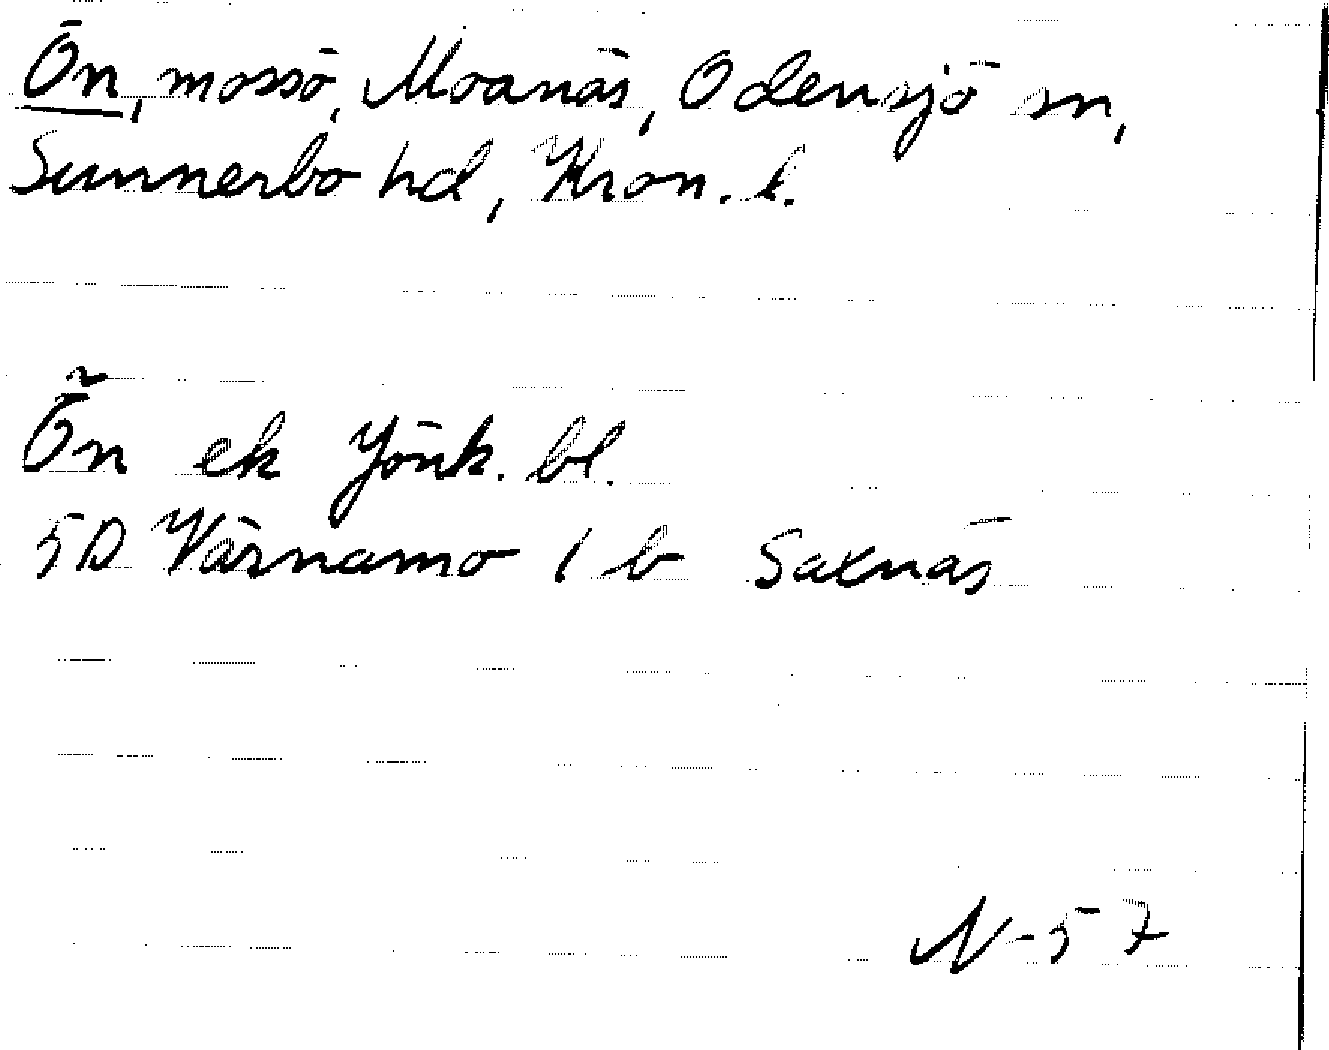 Ön, mossö, Moanäs, Odensjö sn,
Sunnerbo hd, Kron. l.
Ön ek Jönk. bl.
5D Värnamo 1 b Saxnäs
N-57